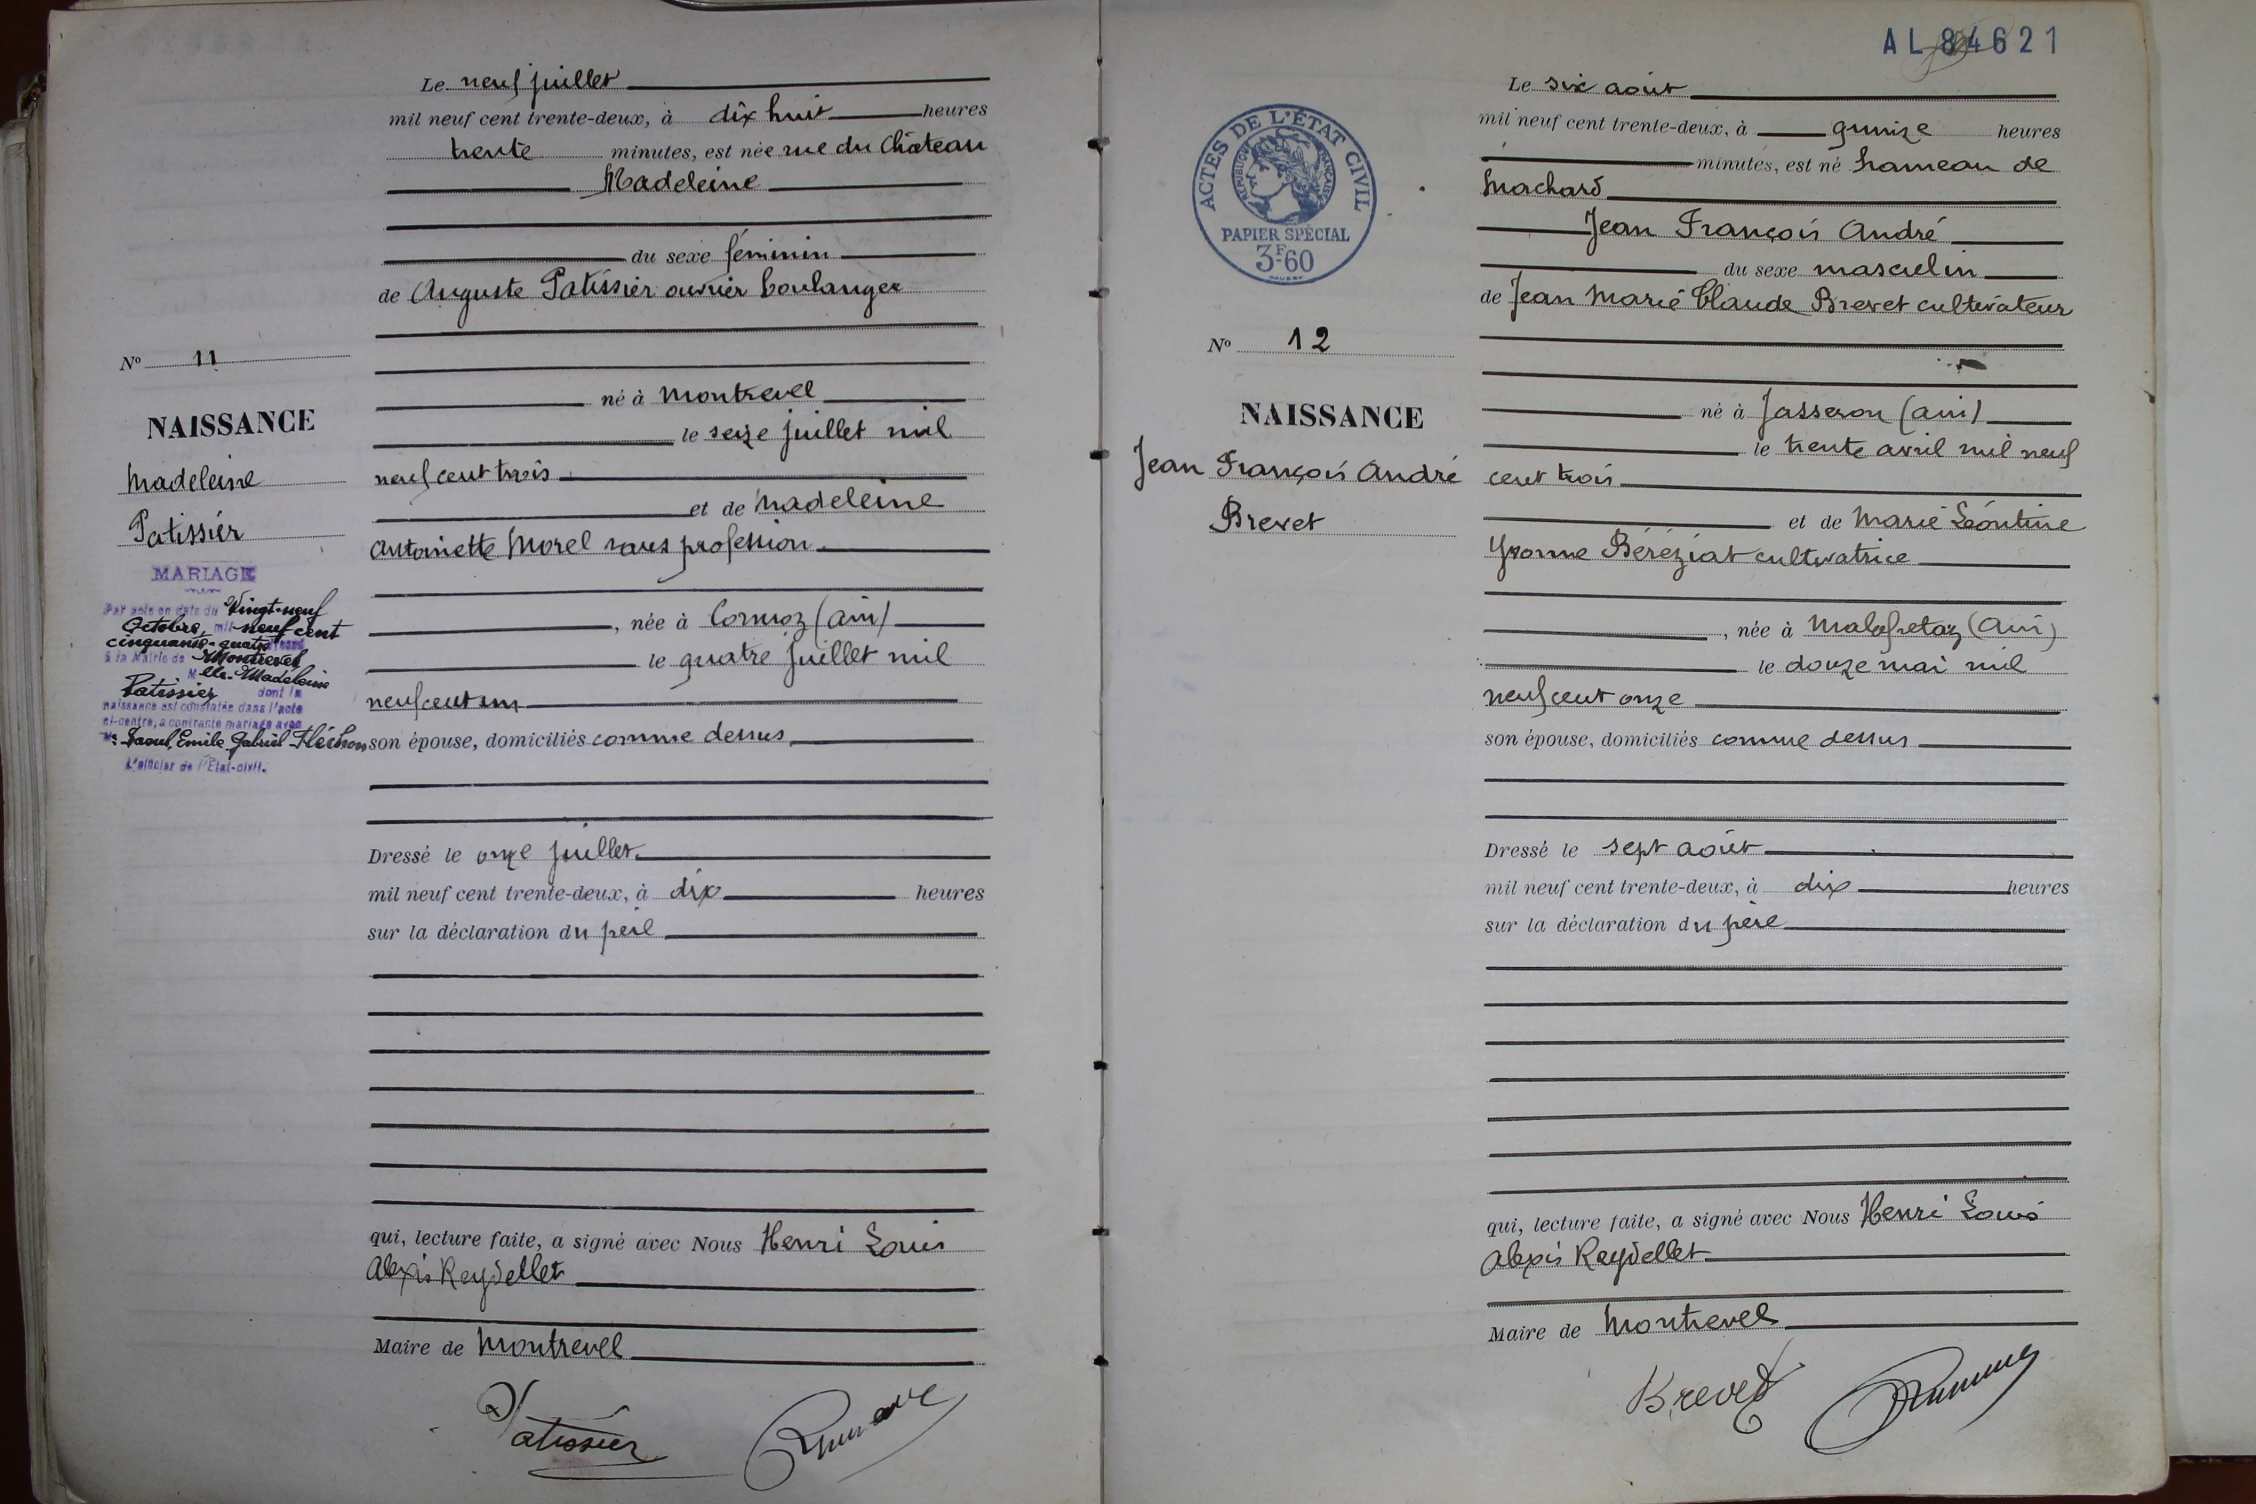 Le neuf juillet
mil neuf cent trente-deux, à dix huit heures
trente minutes, est née rue du Château
Madeleine
du sexe féminin
de Auguste Patissier ouvrier boulanger
né à Montrevel
le seize juillet mil
neuf cent trois
et de Madeleine
Antoinette Morel sans profession
, née à Cormoz (Ain)
le quatre juillet mil
neuf cent un
son épouse, domiciliés comme dessus
Dressé le onze juillet
mil neuf cent trente-deux, à dix heures
sur la déclaration du père
qui, lecture faite, a signé avec Nous Henri Louis
Alexis Reydellet
Maire de Montrevel
Patissier
No 11
NAISSANCE
Madeleine
Patissier
MARIAGE
Par acte en date du Vingt-neuf
Octobre mil neuf cent
cinquante-quatre
à la Mairie de Montrevel
Mlle Madeleine
Patissier dont la
naissance est constatée dans l'acte
ci-contre, a contracté mariage avec
Mr Raoul, Emile, Gabriel Fléchon
L'officier de l'Etat-civil.
AL84621
ACTES DE L'ÉTAT CIVIL
RÉPUBLIQUE FRANÇAISE
PAPIER SPÉCIAL
3F.60
No 12
NAISSANCE
Jean François André
Brevet
Le six août
mil neuf cent trente-deux, à quinze heures
minutes, est né hameau de
Machard
Jean François André
du sexe masculin
de Jean Marie Claude Brevet cultivateur
né à Jasseron (Ain)
le trente avril mil neuf
cent trois
et de Marie Léontine
Yvonne Béréziat cultivatrice
, née à Malafretaz (Ain)
le douze mai mil
neuf cent onze
son épouse, domiciliés comme dessus
Dressé le sept août
mil neuf cent trente-deux, à dix heures
sur la déclaration du père
qui, lecture faite, a signé avec Nous Henri Louis
Alexis Reydellet
Maire de Montrevel
Brevet